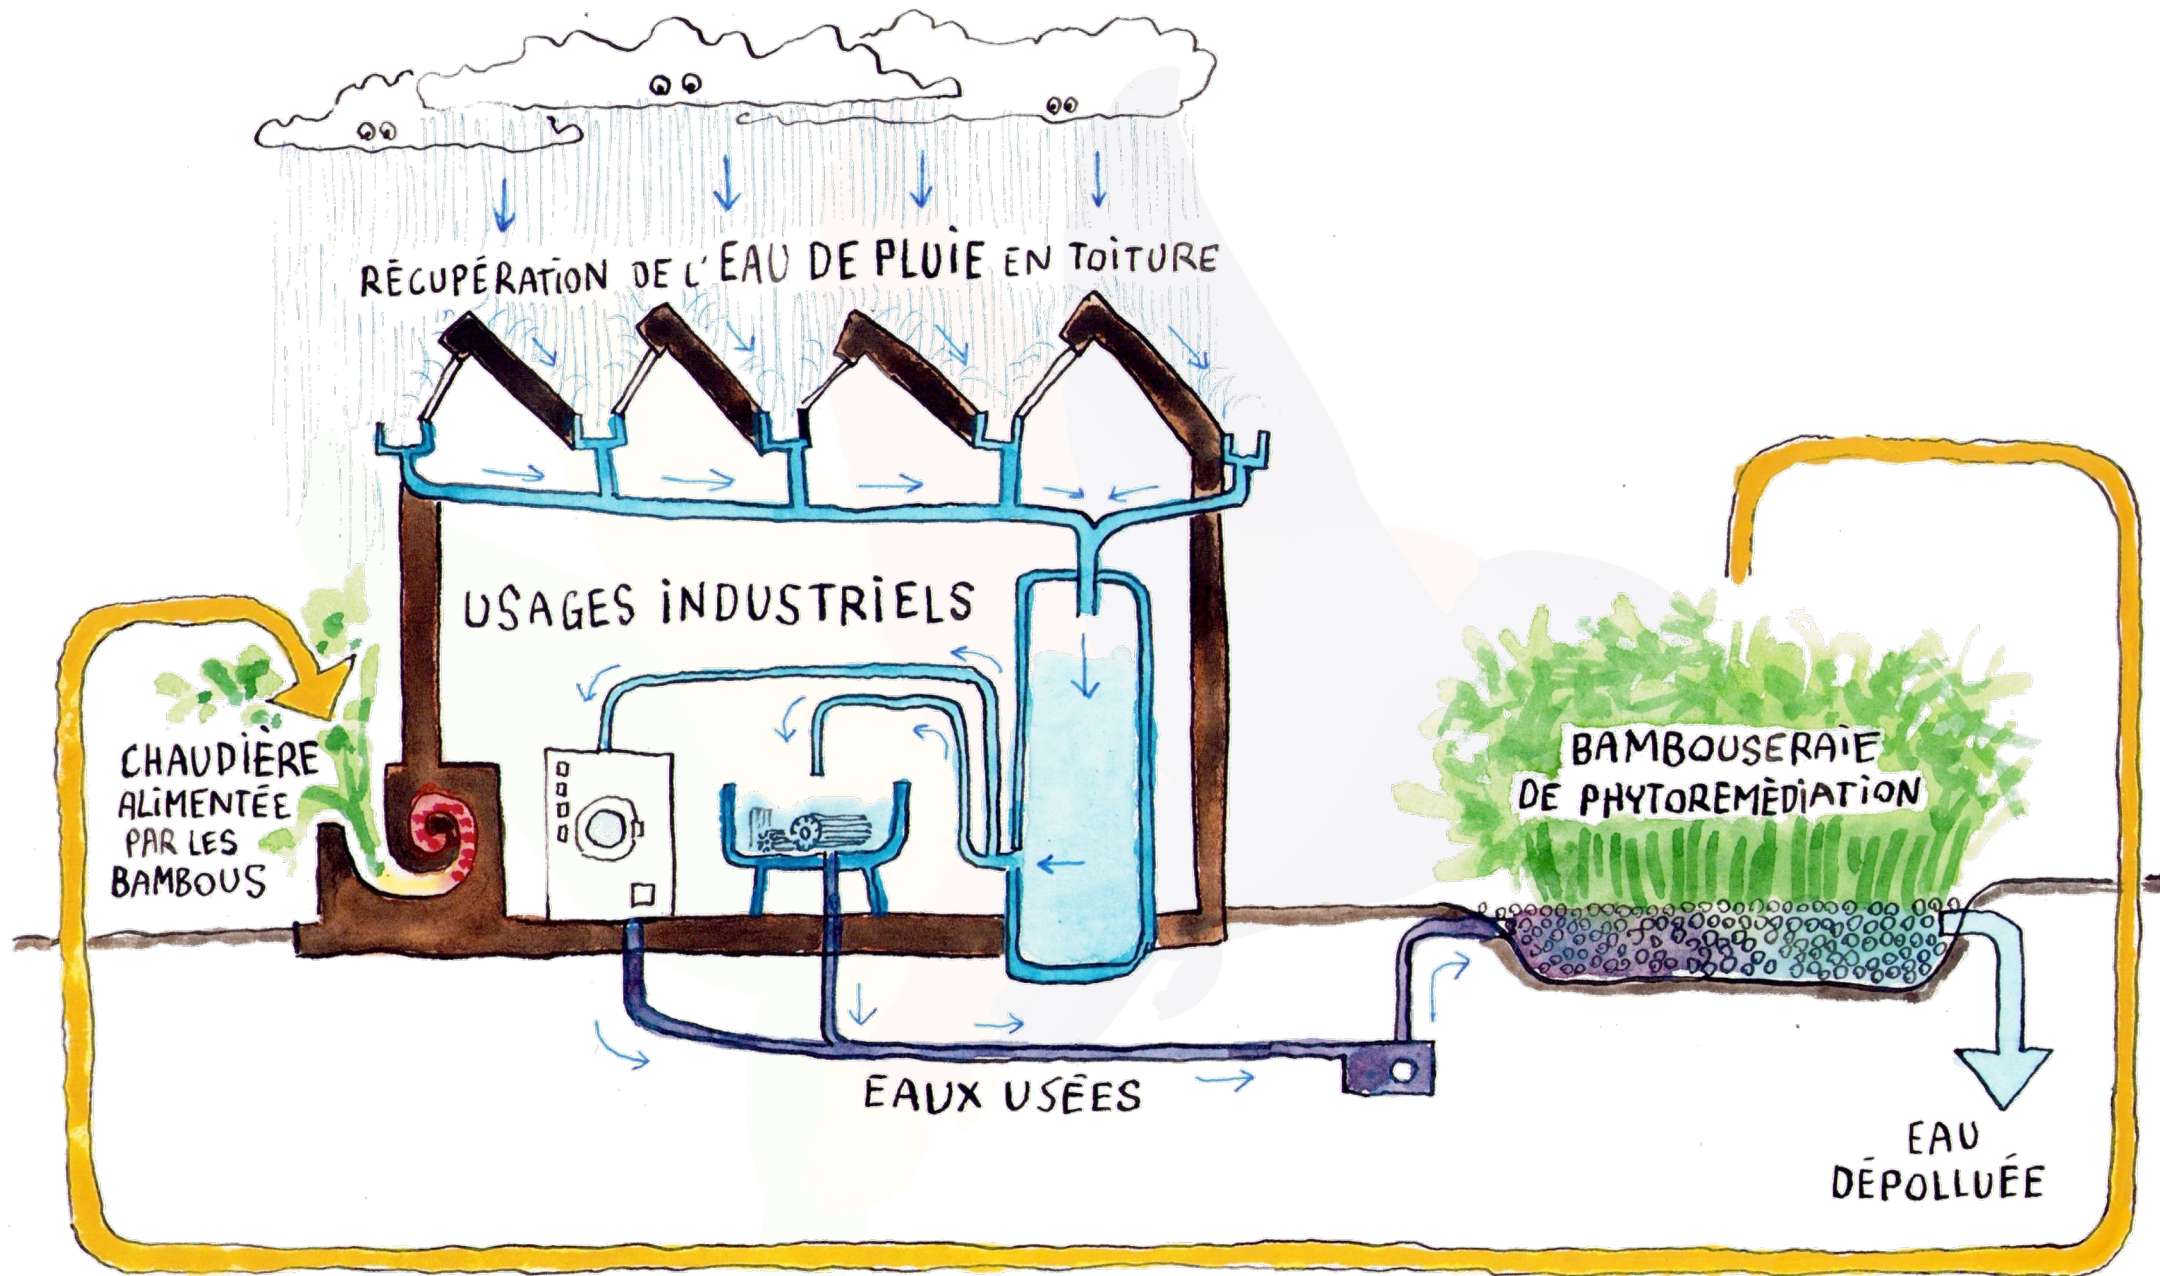 RÉCUPÉRATION DE L'EAU DE PLUIE EN TOITURE
USAGES INDUSTRIELS
CHAUDIÈRE
ALIMENTÉE
PAR LES
BAMBOUS
BAMBOUSERAIE
DE PHYTOREMÈDIATION
EAUX USÉES
EAU
DÉPOLLUÉE